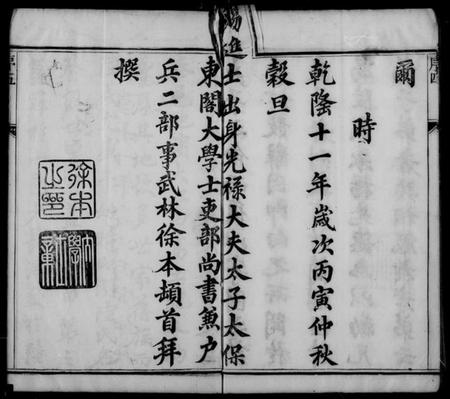 爾
時
乾隆十一年歲次丙寅仲秋
穀旦
賜進士出身光祿大夫太子太保
東閣大學士吏部尚書兼户
兵二部事武林徐本頓首拜
撰
徐本之印
序四
序五